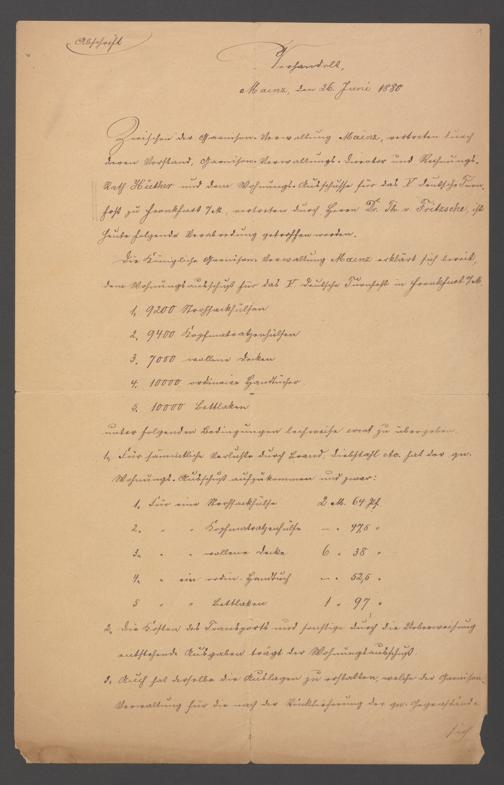 Abschrift
Verhandelt,
Mainz, den 26. Juni 1880
Zwischen der Garnison-Verwaltung Mainz, vertreten durch
deren Vorstand, Garnison-Verwaltungs-Director und Rechnungs-
Rath Hüther und dem Wohnungs-Ausschusse für das V deutsche Turn-
fest zu Frankfurt a/M., vertreten durch Herrn Dr. Th. v. Fritzsche, ist
heute folgende Verabredung getroffen worden.
Die Königliche Garnison-Verwaltung Mainz erklärt sich bereit,
dem Wohnungsausschuß für das V deutsche Turnfest in Frankfurt a/M.
1, 9200 Strohsackhülsen
2. 9400 Kopfmatratzenhülsen
3. 7000 wollene Decken
4. 10000 ordinaire Handtücher
5. 10000 Bettlaken
unter folgenden Bedingungen leihweise zu übergeben.
1, Für sämmtliche Verluste durch Brand, Diebstahl etc. hat der gen.
Wohnungs-Ausschuß aufzukommen und zwar:
1. Für eine Strohsackhülse 2 M. 64 Pf.
2. " " Kopfmatratzenhülse — " 47,5 "
3. " " wollene Decke 6 " 38 "
4. " ein ordin. Handtuch — " 52,5 "
5 " " Bettlaken 1 " 97 "
2, Die Kosten des Transports und sonstige durch die Ueberweisung
entstehende Ausgaben trägt der Wohnungsausschuß.
3, Auch hat derselbe die Auslagen zu erstatten, welche der Garnison-
Verwaltung für die nach der Rücklieferung der gen. Gegenstände